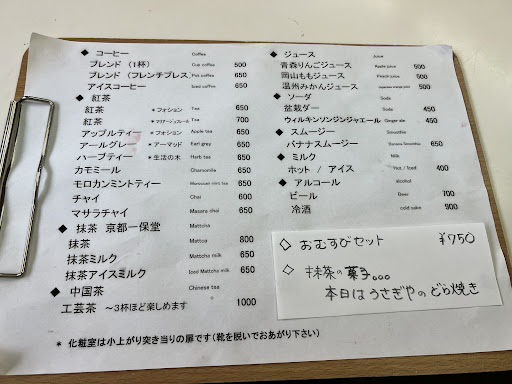 ◆ コーヒー Coffee
ブレンド (1杯) Cup coffee 500
ブレンド (フレンチプレス) Pot coffee 650
アイスコーヒー Iced coffee 650
◆ 紅茶
紅茶 *フォション Tea 650
紅茶 *マリアージュフレール Tea 700
アップルティー *フォション Apple tea 650
アールグレー *アーマッド Earl grey 650
ハーブティー *生活の木 Harb tea 650
カモミール Chamomile 650
モロカンミントティー Moroccan mint tea 650
チャイ Chai 600
マサラチャイ Masara chai 650
◆ 抹茶 京都一保堂 Mattcha
抹茶 Mattca 800
抹茶ミルク Mattcha milk 650
抹茶アイスミルク Iced Mattcha milk 650
◆ 中国茶 Chinese tea
工芸茶 ~3杯ほど楽しめます 1000
* 化粧室は小上がり突き当りの扉です(靴を脱いでおあがり下さい)
◆ ジュース Juice
青森りんごジュース Apple juice 500
岡山ももジュース Peach juice 500
温州みかんジュース 450
◆ ソーダ Soda
盆栽ダー Soda 450
ウィルキンソンジンジャエール Ginger ale 450
◆ スムージー Smoothie
バナナスムージー Banana Smoothie 650
◆ ミルク Milk
ホット / アイス Hot / Iced 400
◆ アルコール Alcohol
ビール Beer 700
冷酒 cold sake 900
◇ おむすびセット ¥750
◇ 抹茶の菓子。。。
本日はうさぎやのどら焼き